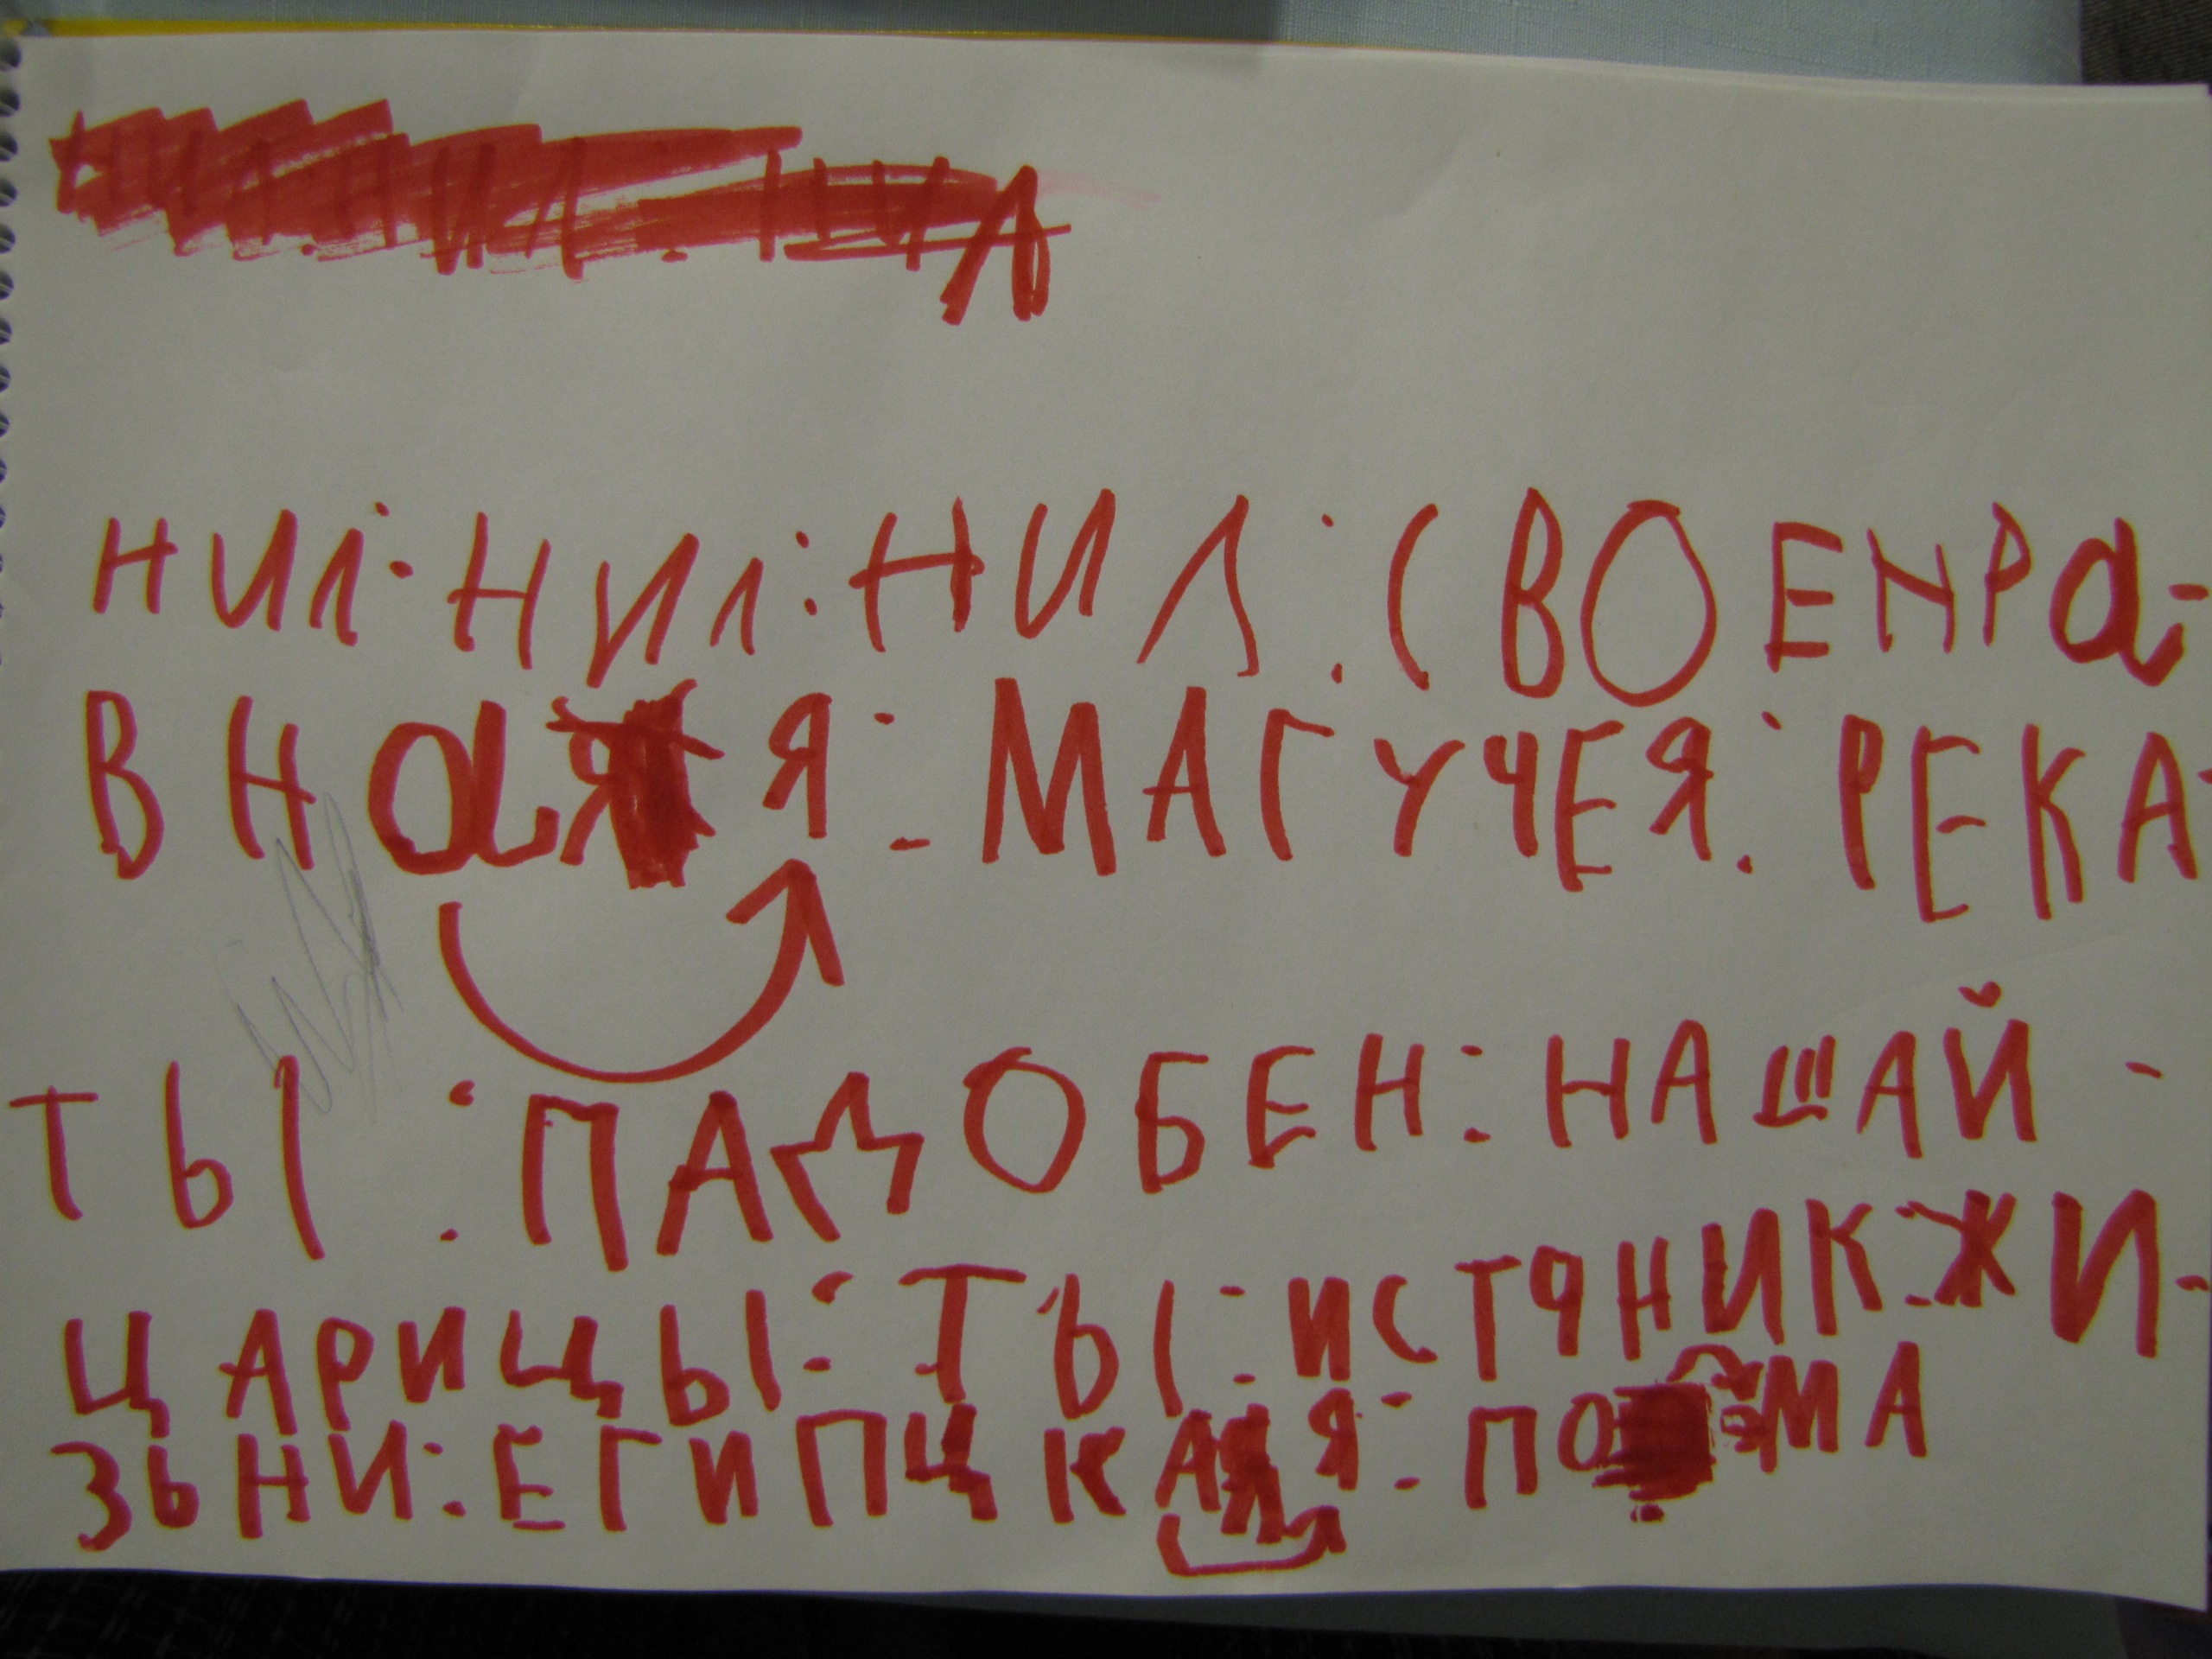 НИЛ:НИЛ:НИЛ
НИЛ:НИЛ:НИЛ:СВОЕNРА-
ВНАЯ:МАГУЧЕЯ:РЕКА-
ТЫ:ПАДОБЕН:НАШАЙ-
ЦАРИЦЫ:ТЫ:ИСТЧНИК:ЖИ-
ЗЬНИ:ЕГИПЦКАЯ:ПОЭМА